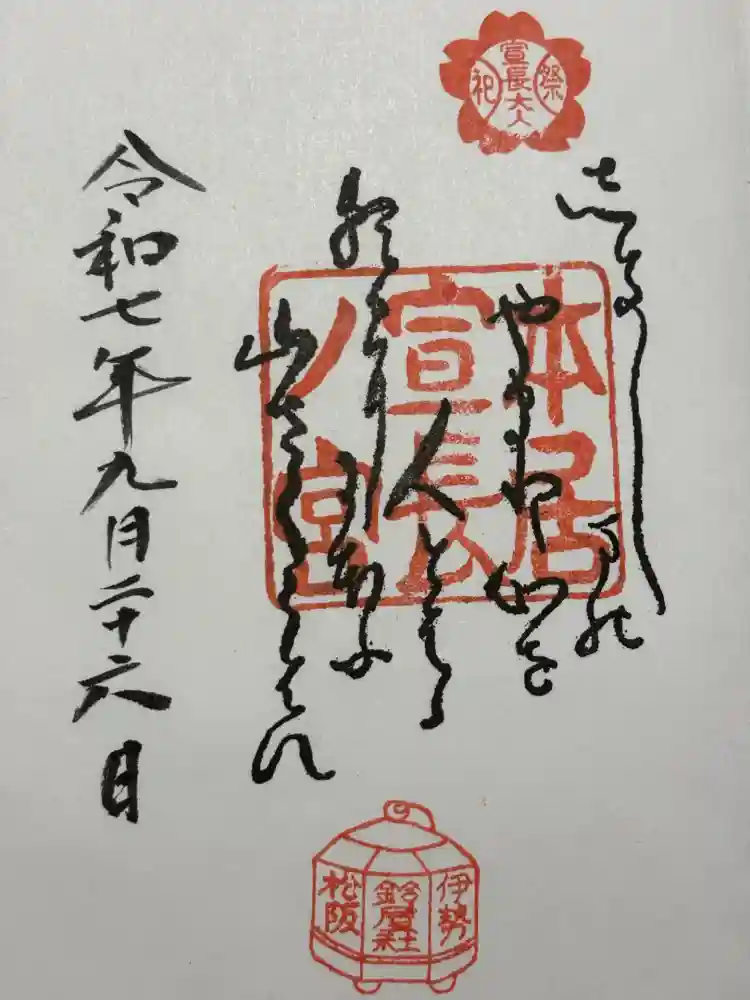 宣長大人
祭
祀
志きしまの
やまと心を
人とはゝ
朝日ににほふ
山さくらはな
本居
宣長
ノ宮
令和七年九月二十六日
伊勢
鈴屋社
松阪